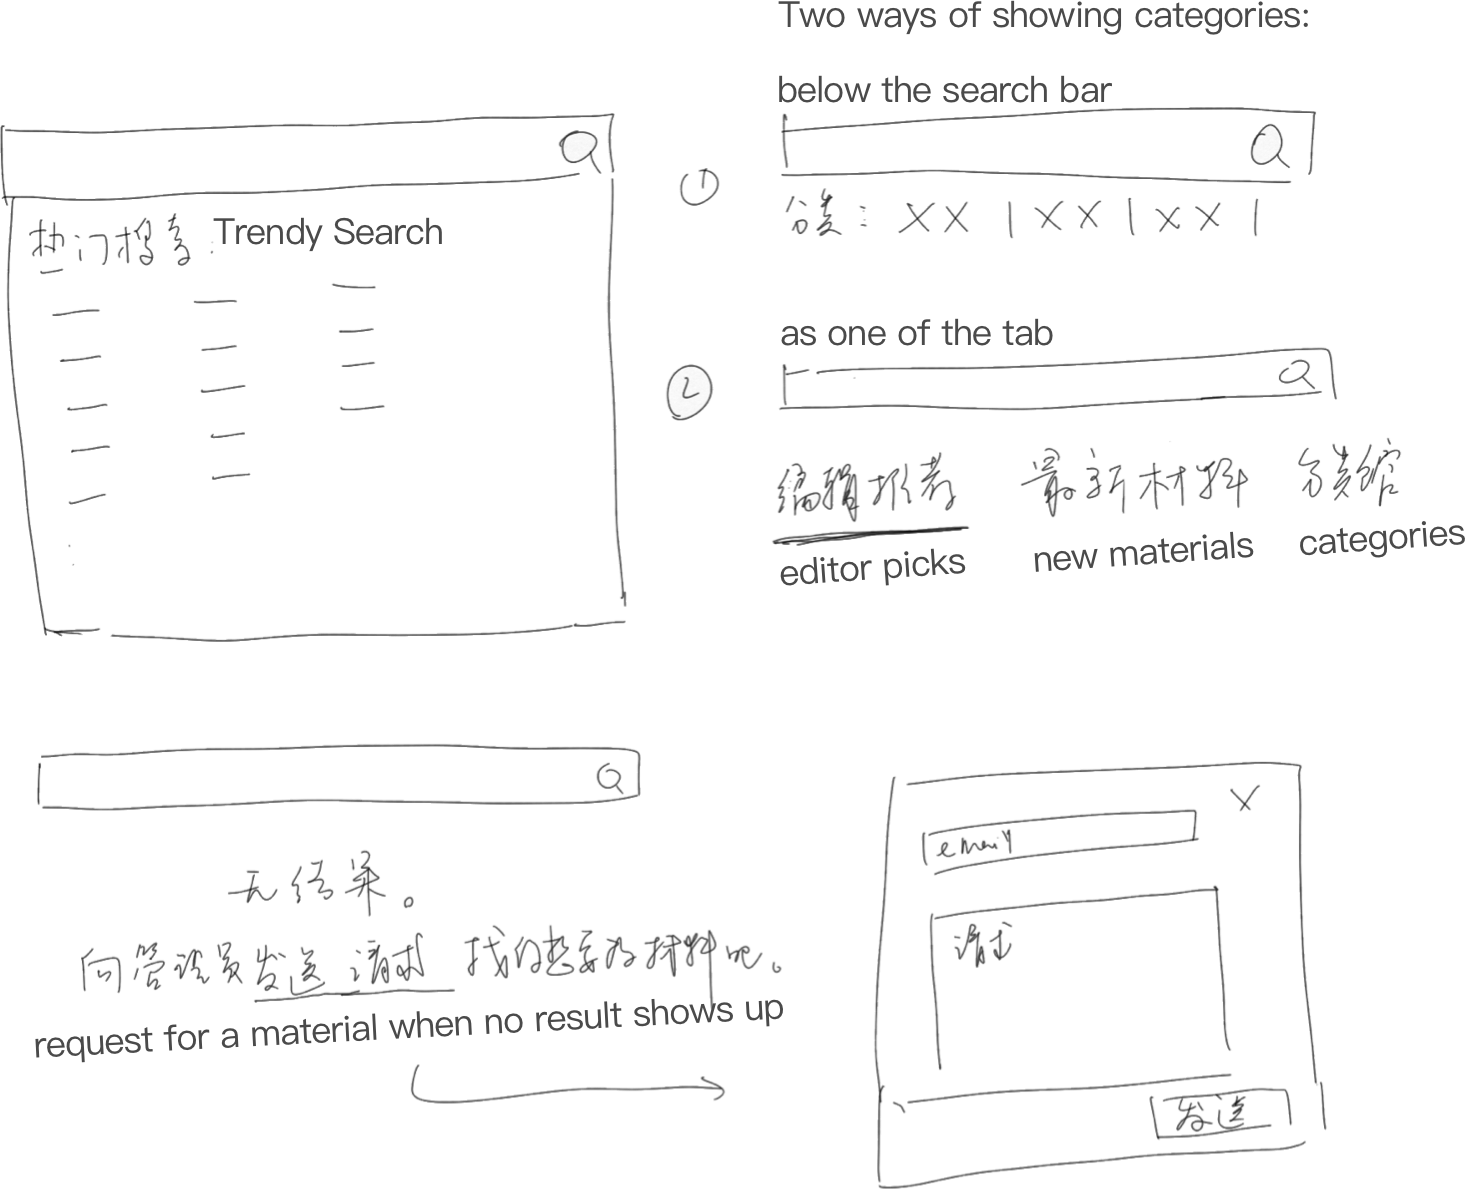 Two ways of showing categories:
below the search bar
热门搜索: Trendy Search
①
分类: XX | XX | XX |
as one of the tab
②
编辑推荐 最新材料 分类馆
editor picks new materials categories
无结果。
向管理员发送请求 找你想要的材料吧。
request for a material when no result shows up
X
email
请求
发送